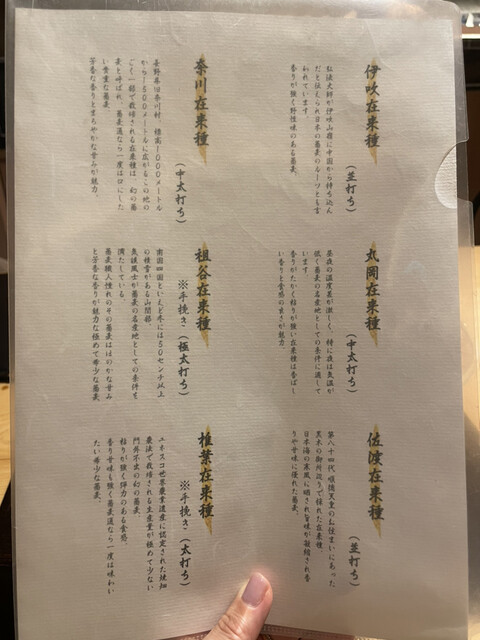 伊吹在来種
(並打ち)
弘法大師が伊吹山麓に中国から持ち込ん
だと伝えられ日本の蕎麦のルーツとも言
われています。
香りが強く野性味のある蕎麦。
丸岡在来種
(中太打ち)
昼夜の温度差が激しく、特に夜は気温が
低く蕎麦の名産地としての条件に適して
います。
香りがたかく粘りが強い在来種は香ばし
い香りと食感の良さが魅力。
佐渡在来種
(並打ち)
第八十四代 順徳天皇のお住まいにあった
黒木の御所辺りで採れた在来種
日本海の寒風に晒され旨味が凝縮され香
りや甘味に優れた蕎麦。
奈川在来種
(中太打ち)
長野県旧奈川村、標高1000メートル
から1600メートルに広がるこの地の
ごく一部で栽培される在来種は、幻の蕎
麦と呼ばれ、蕎麦通なら一度は口にした
い貴重な蕎麦。
芳香な香りとまろやかな甘みが魅力。
祖谷在来種
※手挽き (極太打ち)
南国四国といえど冬には50センチ以上
の積雪がある山間部
気候風土が蕎麦の名産地としての条件を
満たしている。
蕎麦職人憧れのその蕎麦はほのかな甘み
と芳香な香りが魅力な極めて希少な蕎麦。
椎葉在来種
※手挽き (太打ち)
ユネスコ世界農業遺産に認定された焼畑
農法で栽培される生産量が極めて少ない
門外不出の幻の蕎麦。
粘りが強く弾力のある食感、
香り甘味も強く蕎麦通なら一度は味わい
たい希少な蕎麦。